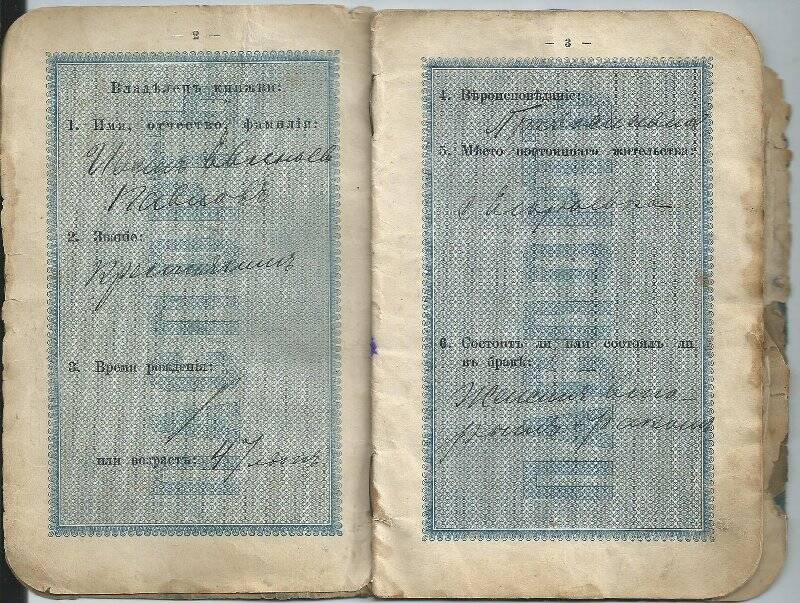 — 2 —
Владѣлецъ книжки:
1. Имя, отчество, фамилія:
Павловъ
2. Званіе:
Крестьянинъ
3. Время рожденія:
или возрастъ: 47 лѣтъ
— 3 —
4. Вѣроисповѣданіе:
Православное
5. Мѣсто постояннаго жительства:
6. Состоитъ ли или состоялъ ли
въ бракѣ:
Женатъ вто-
рымъ бракомъ